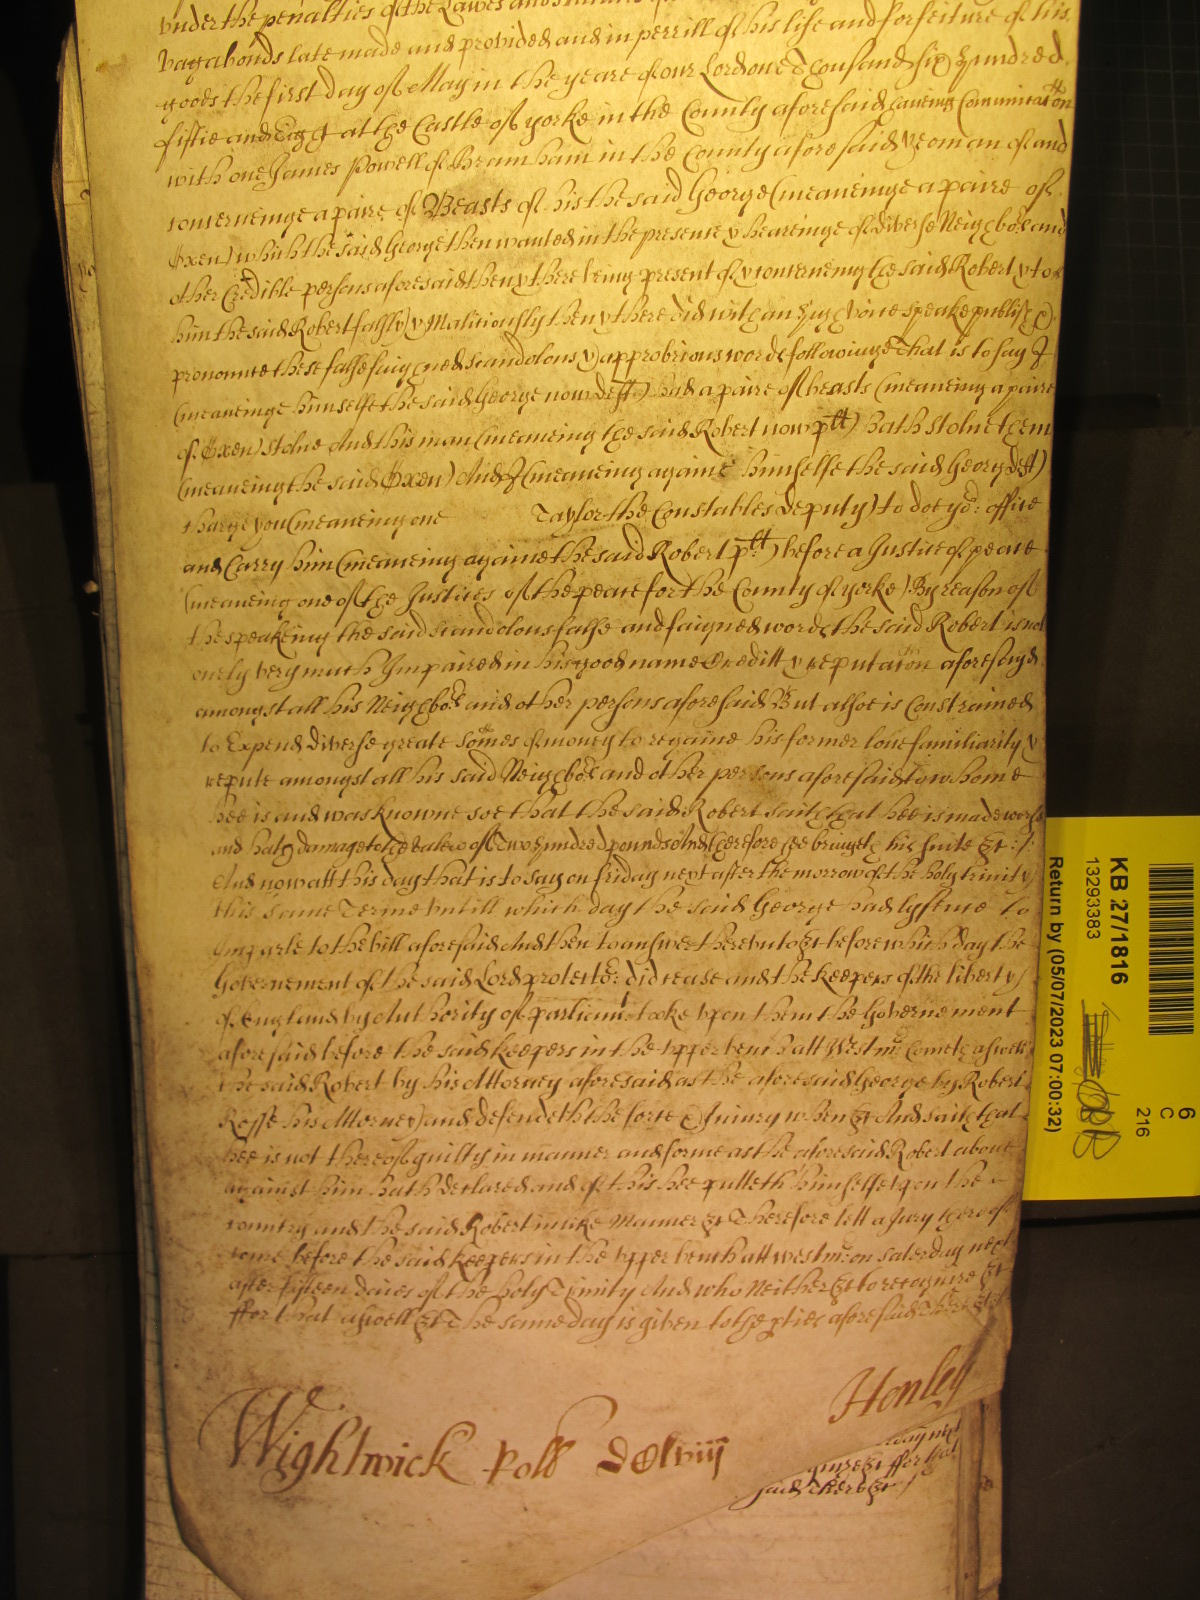 vnder the penalties of the Lawes and
vagabonds late made and provided and in perrill of his life and forfeiture of his
goods the first day of May in the yeare of our Lord one Thousand six hundred
fiftie and Eight at the Castle of yorke in the County aforesaid haueing Communicatōn
with one James Powell of Bramham in the County aforesaid yeoman of and
concerneinge a paire of Beasts of his the said George (meaneinge a paire of
Oxen) which the said George then wanted in the presence & heareinge of diverse Neighbors and
other Credible persons aforesaid then & there being present of & concerneing the said Robert & to
him the said Robert falsly & Malitiously then & there did with an high voice speake publish &
pronounce these false faigned scandolous & approbrious words followinge That is to say I
(meaneinge himselfe the said George now deft) had a paire of beasts (meaneing a paire
of Oxen) stolne And this man (meaneing the said Robert now plt) hath stolne them
(meaneing the said Oxen) And I (meaneing againe himselfe the said George deft)
charge you (meaneing one Taylor the Constables deputy) to doe yor office
and Carry him (meaneing againe the said Robert plt) before a Justice of peace
(meaneing one of the Justices of the peace for the County of yorke) By reason of
the speakeing the said scandolous false and faigned words the said Robert is not
onely very much Impaired in his good name Creditt & reputatōn aforesayd
amongst all his Neighbors and other persons aforesaid But alsoe is Constrained
to Expend diverse greate somes of money to regaine his former loue familiarity &
repute amongst all his said Neighbors and other persons aforesaid to whome
hee is and was knowne soe that the said Robert saith that hee is made worse
and hath damage to the valew of Two hundred pounds And therefore hee bringeth his suite &c
And now att this day that is to say on friday next after the morrow of the holy trinity
this same Terme vntill which day the said George had lycence to
Imparle to the bill aforesaid And then to answere therevnto &c before which day the
Governement of the said Lord protector did cease and the keepers of the liberty
of England by Authority of parliamt tooke vpon them the Governement
aforesaid before the said keepers in the vpper bench att Westmr Cometh aswell
the said Robert by his Attorney aforesaid as the aforesaid George by Robert
Rosse his Attorney and defendeth the force & Injury when &c And saith that
hee is not thereof guilty in manner and forme as the aforesaid Robert aboue
against him hath declared and of this hee putteth himselfe vpon the
country and the said Robert in like Manner &c Therefore lett a Jury thereof
come before the said keepers in the vpper bench att westmr on saterday next
after fifteen daies of the holy Trinity And who Neither &c to recognize &c
ffor that aswell &c The same day is given to the pties aforesaid there &c
Henley
Wightwick Roll
day next
gnize &c ffor that
said there &c
KB 27/1816
13293383
Return by (05/07/2023 07:00:32)
6
C
216